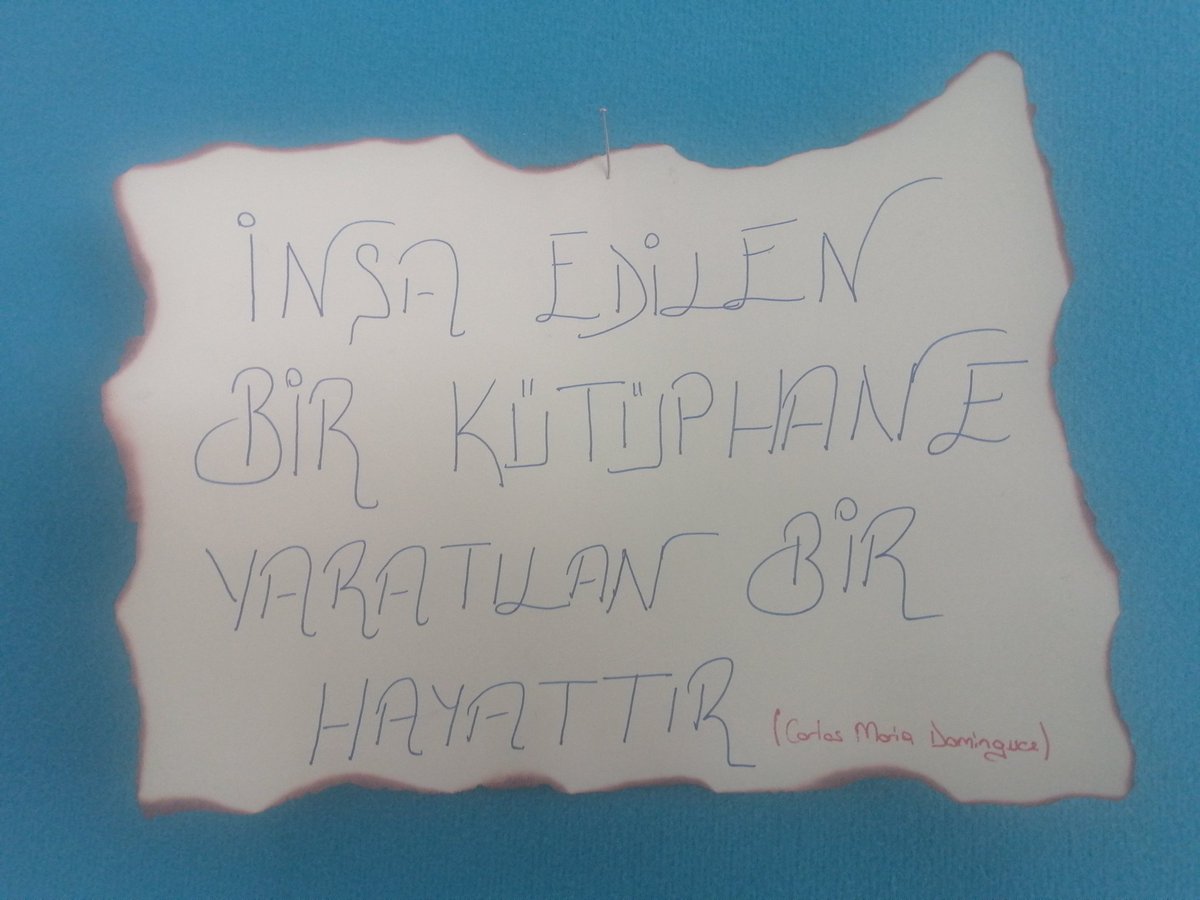 İNŞA EDİLEN
BİR KÜTÜPHANE
YARATILAN BİR
HAYATTIR
(Carlos Maria Dominguce)